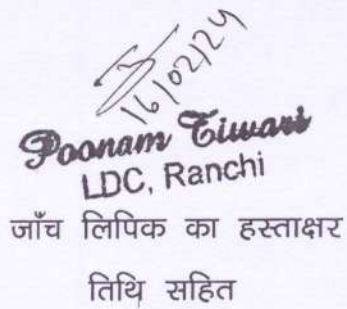 16/02/24
Poonam Tiwari
LDC, Ranchi
जाँच लिपिक का हस्ताक्षर
तिथि सहित